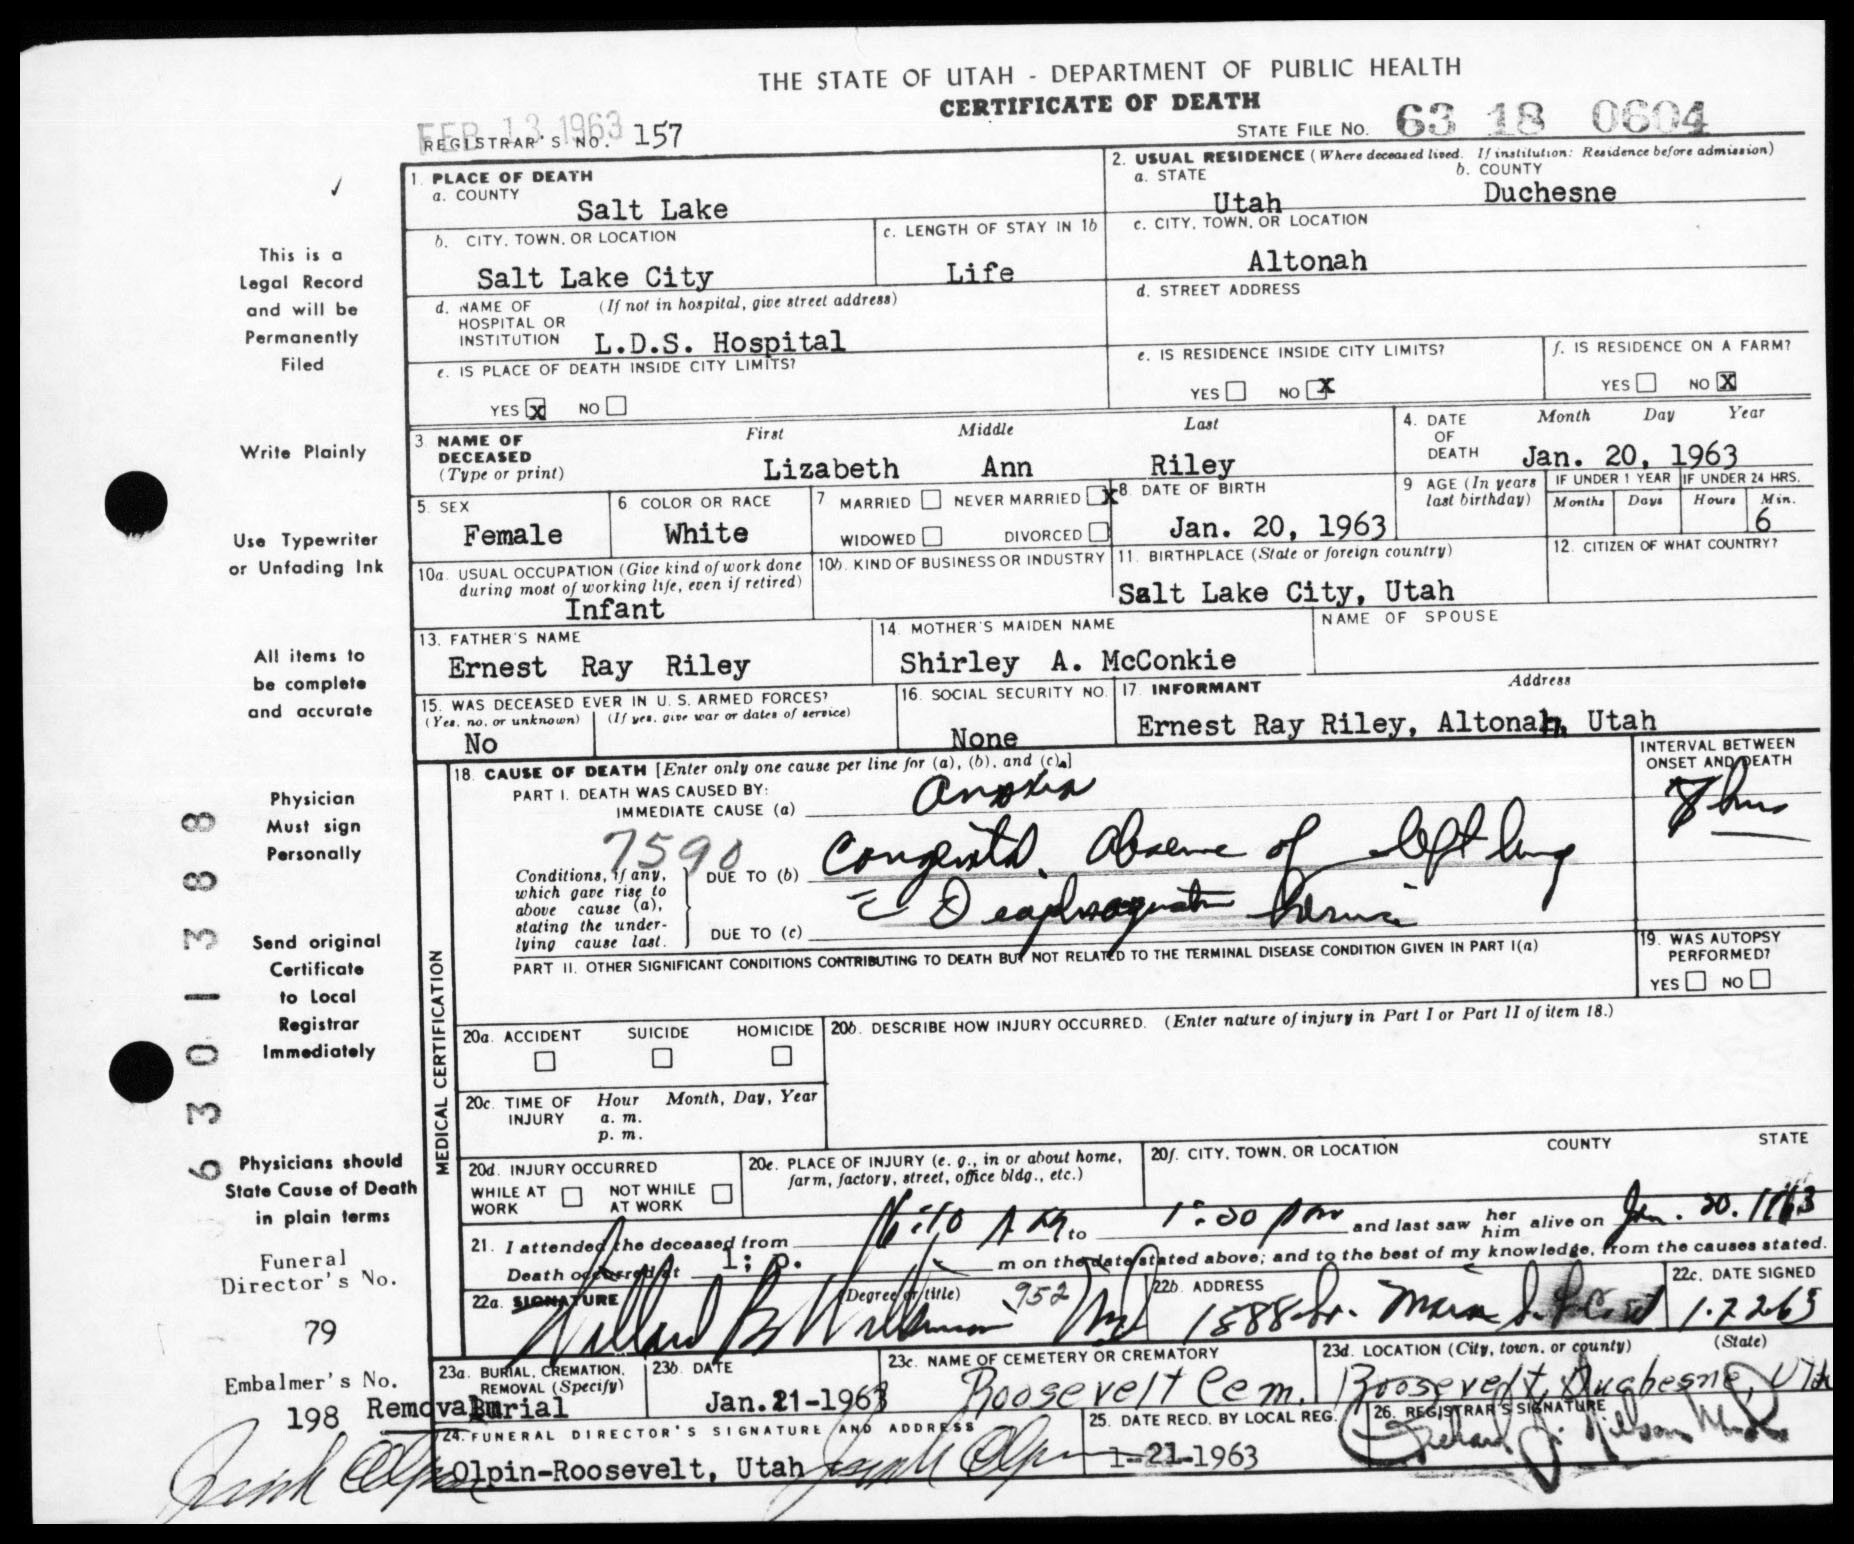 THE STATE OF UTAH - DEPARTMENT OF PUBLIC HEALTH
CERTIFICATE OF DEATH
FEB 13 1963
REGISTRAR'S NO. 157
STATE FILE NO. 63 18 0604
1. PLACE OF DEATH
a. COUNTY
Salt Lake
2. USUAL RESIDENCE (Where deceased lived. If institution: Residence before admission)
a. STATE b. COUNTY
Utah Duchesne
b. CITY, TOWN, OR LOCATION
Salt Lake City
c. LENGTH OF STAY IN 1b
Life
c. CITY, TOWN, OR LOCATION
Altonah
d. NAME OF HOSPITAL OR INSTITUTION (If not in hospital, give street address)
L.D.S. Hospital
d. STREET ADDRESS
e. IS PLACE OF DEATH INSIDE CITY LIMITS?
YES X NO
e. IS RESIDENCE INSIDE CITY LIMITS?
YES NO X
f. IS RESIDENCE ON A FARM?
YES NO X
3. NAME OF DECEASED (Type or print)
First Middle Last
Lizabeth Ann Riley
4. DATE OF DEATH Month Day Year
Jan. 20, 1963
5. SEX
Female
6. COLOR OR RACE
White
7. MARRIED NEVER MARRIED X
WIDOWED DIVORCED
8. DATE OF BIRTH
Jan. 20, 1963
9. AGE (In years last birthday)
IF UNDER 1 YEAR IF UNDER 24 HRS.
Months Days Hours Min.
6
10a. USUAL OCCUPATION (Give kind of work done during most of working life, even if retired)
Infant
10b. KIND OF BUSINESS OR INDUSTRY
11. BIRTHPLACE (State or foreign country)
Salt Lake City, Utah
12. CITIZEN OF WHAT COUNTRY?
13. FATHER'S NAME
Ernest Ray Riley
14. MOTHER'S MAIDEN NAME
Shirley A. McConkie
NAME OF SPOUSE
15. WAS DECEASED EVER IN U. S. ARMED FORCES?
(Yes, no, or unknown) (If yes, give war or dates of service)
No
16. SOCIAL SECURITY NO.
None
17. INFORMANT Address
Ernest Ray Riley, Altonah, Utah
MEDICAL CERTIFICATION
18. CAUSE OF DEATH [Enter only one cause per line for (a), (b), and (c).]
INTERVAL BETWEEN ONSET AND DEATH
PART I. DEATH WAS CAUSED BY:
IMMEDIATE CAUSE (a) Anoxia
hrs
7590
Conditions, if any, which gave rise to above cause (a), stating the underlying cause last.
DUE TO (b) Congenital Absence of left lung
Diaphragmatic hernia
DUE TO (c)
PART II. OTHER SIGNIFICANT CONDITIONS CONTRIBUTING TO DEATH BUT NOT RELATED TO THE TERMINAL DISEASE CONDITION GIVEN IN PART I(a)
19. WAS AUTOPSY PERFORMED?
YES NO
20a. ACCIDENT SUICIDE HOMICIDE
20b. DESCRIBE HOW INJURY OCCURRED. (Enter nature of injury in Part I or Part II of item 18.)
20c. TIME OF INJURY Hour Month, Day, Year
a. m.
p. m.
20d. INJURY OCCURRED
WHILE AT WORK NOT WHILE AT WORK
20e. PLACE OF INJURY (e. g., in or about home, farm, factory, street, office bldg., etc.)
20f. CITY, TOWN, OR LOCATION COUNTY STATE
21. I attended the deceased from to 1:00 pm and last saw her him alive on Jan. 20. 1963
Death occurred at 1; p. m on the date stated above; and to the best of my knowledge, from the causes stated.
22a. SIGNATURE (Degree or title)
Willard B 952 MD
22b. ADDRESS
1888 So. Main
22c. DATE SIGNED
23a. BURIAL, CREMATION, REMOVAL (Specify)
Removal Burial
23b. DATE
Jan.21-1963
23c. NAME OF CEMETERY OR CREMATORY
Roosevelt Cem.
23d. LOCATION (City, town, or county) (State)
Roosevelt, Duchesne, Utah
24. FUNERAL DIRECTOR'S SIGNATURE AND ADDRESS
Olpin-Roosevelt, Utah Joseph Olpin
25. DATE RECD. BY LOCAL REG.
1-21-1963
26. REGISTRAR'S SIGNATURE
This is a
Legal Record
and will be
Permanently
Filed
Write Plainly
Use Typewriter
or Unfading Ink
All items to
be complete
and accurate
Physician
Must sign
Personally
Send original
Certificate
to Local
Registrar
Immediately
Physicians should
State Cause of Death
in plain terms
6301388
Funeral
Director's No.
79
Embalmer's No.
198
Olpin